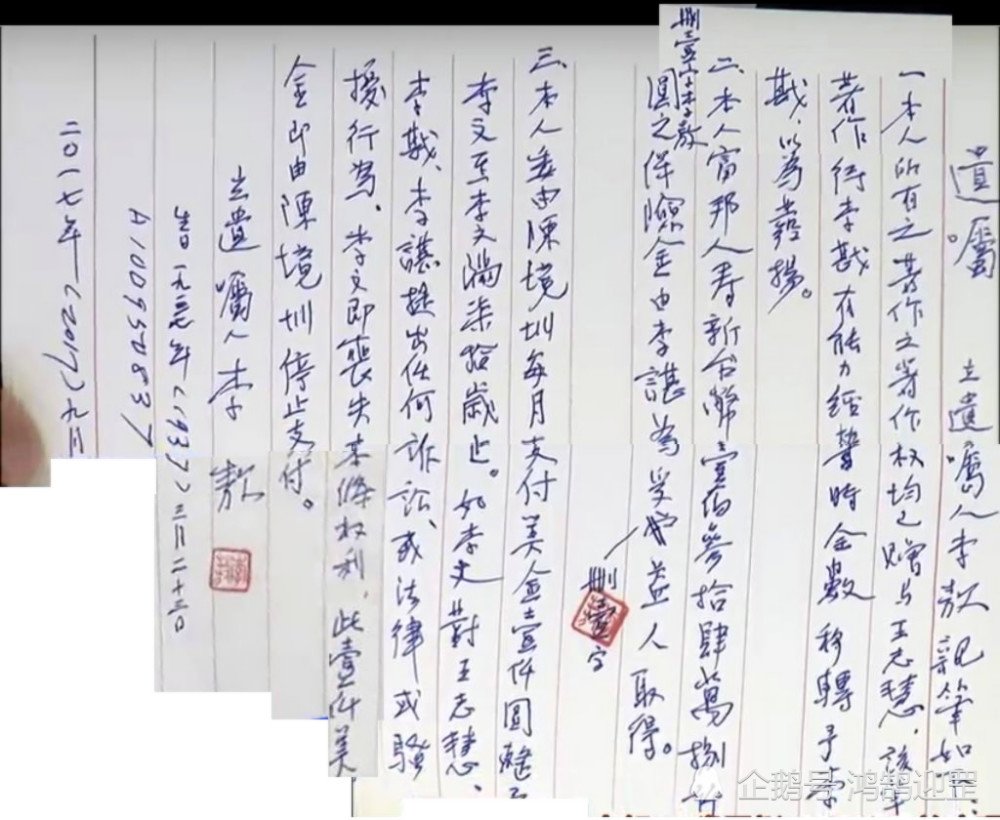 遺囑
立遺囑人李敖親筆如下:
一、本人所有之著作之著作权均已赠与王志慧,該等
著作待李戡有能力經營時全數移轉予李
戡,以為發揚。
二、本人富邦人壽新台幣壹佰參拾肆萬捌
圓之保險金由李諶為受益人取得。
刪壹字李敖
刪壹字
三、本人委由陳境圳每月支付美金壹仟圓
李文至李文滿柒拾歲止。如李文對王志慧、
李戡、李諶提出任何訴訟、或法律或騷
擾行為,李文即喪失本條权利,此壹仟美
金即由陳境圳停止支付。
立遺囑人李敖
生日一九三五年(1935)
二〇一七年(2017)九月
企鹅号 鸿鹄迎罡